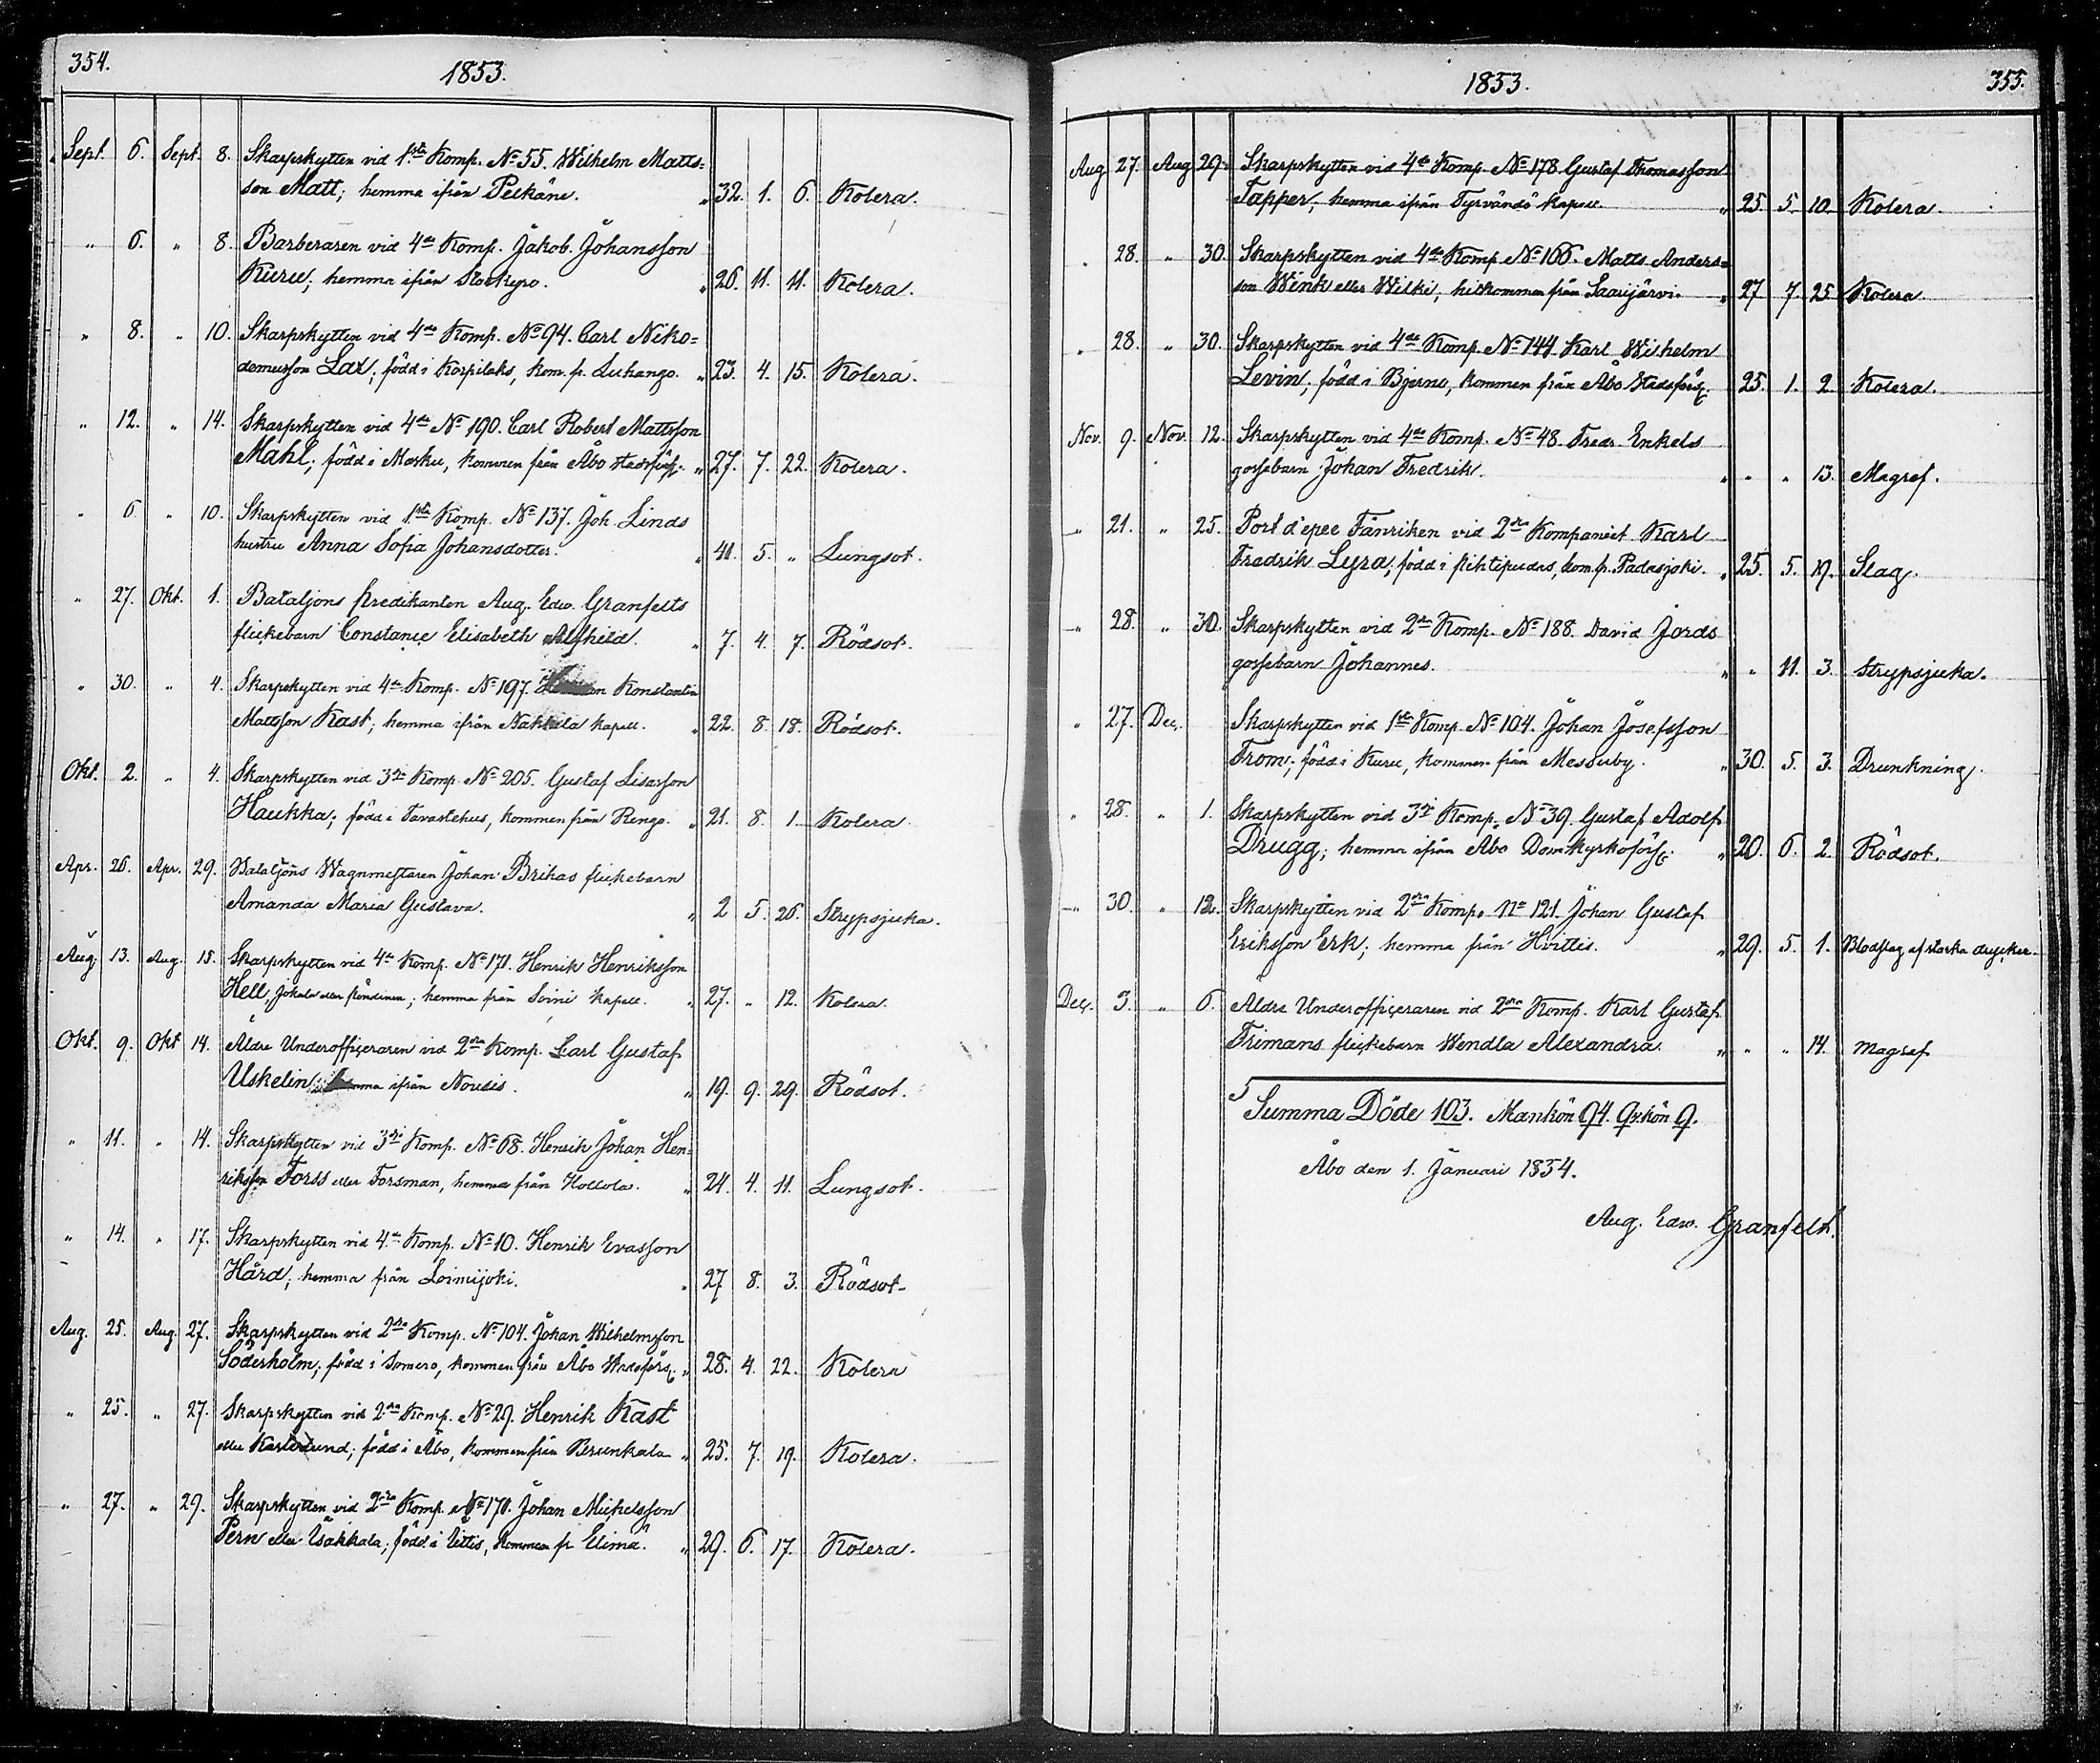 354.
1853.
Sept. 6. Sept. 8. Skarpskytten vid 1sta Komp. No 55. Wilhelm Matts=
son Matt; hemma ifrån Pelkäne. „ 32. 1. 6. Kolera.
„ 6. „ 8. Barberaren vid 4de Komp. Jakob Johansson
Kuru; hemma ifrån Storkyro. „ 26. 11. 11. Kolera.
„ 8. „ 10. Skarpskytten vid 4de Komp. No 94. Carl Niko=
demusson Lax; född i Korpilaks, kom. fr. Luhango. „ 23. 4. 15. Kolera.
„ 12. „ 14. Skarpskytten vid 4de No 190. Carl Robert Mattsson
Mahl; född i Masku, kommen från Åbo stadsförs. „ 27. 7. 22. Kolera.
„ 6. „ 10. Skarpskytten vid 1sta Komp. No 137. Joh. Linds
hustru Anna Sofia Johansdotter. „ 41. 5. „ Lungsot.
„ 27. Okt. 1. Bataljons predikanten Aug. Edw. Granfelts
flickebarn Constance Elisabeth Alfhild. „ 7. 4. 7. Rödsot.
„ 30. „ 4. Skarpskytten vid 4de Komp. No 197. Herman Konstantin
Mattsson Kast; hemma ifrån Nakkila kapell. „ 22. 8. 18. Rödsot.
Okt. 2. „ 4. Skarpskytten vid 3dje Komp. No 205. Gustaf Lisasson
Haukka; född i Tavastehus, kommen från Rengo. „ 21. 8. 1. Kolera.
Apr. 26. Apr. 29. Bataljons Wagnmestaren Johan Brikas flickebarn
Amanda Maria Gustava. „ 2 5. 26. Strypsjuka.
Aug. 13. Aug. 15. Skarpskytten vid 4de Komp. No 171. Henrik Henriksson
Hell, Jokala eller Röndinen; hemma från Soini kapell. „ 27. „ 12. Kolera.
Okt. 9. Okt 14. Äldre Underofficeraren vid 2dra Komp. Carl Gustaf
Uskelin; hemma ifrån Nousis. „ 19. 9. 29. Rödsot.
„ 11. „ 14. Skarpskytten vid 3dje Komp. No 68. Henrik Johan Hen=
riksson Forss eller Forsman, hemma från Hollola. „ 24. 4. 11. Lungsot.
„ 14. „ 17. Skarpskytten vid 4de Komp. No 10. Henrik Evasson
Hård; hemma från Loimijoki. „ 27 8. 3. Rödsot.
Aug. 25. Aug. 27. Skarpskytten vid 2dra Komp. No 104. Johan Wilhelmsson
Söderholm; född i Somero, kommen från Åbo Stadsförs. „ 28. 4. 22. Kolera
„ 25. „ 27. Skarpskytten vid 2dra Komp. No 29. Henrik Kast
eller Karlslund; född i Åbo, kommen från Brunkala „ 25. 7. 19. Kolera.
„ 27. „ 29. Skarpskytten vid 2dra Komp. No 171. Johan Mickelsson
Pern eller Isäkkala; född i Ittis, kommen fr. Elimä. „ 29. 6. 17. Kolera.
1853.
355.
Aug 27. Aug 29. Skarpskytten vid 4de Komp. No 178 Gustaf Thomasson
Tapper; hemma ifrån Tyrvändö kapell. „ 25. 5. 10. Kolera.
„ 28. „ 30. Skarpskytten vid 4de Komp No 166. Matts Anders=
son Wink eller Wilki; hitkommen från Saarijärvi. „ 27 7. 25 Kolera
„ 28. „ 30. Skarpskytten vid 4de Komp. No 144 Karl Wilhelm
Levin; född i Bjerno, kommen från Åbo Stadsförs. 25. 1. 2. Kolera.
Nov. 9. Nov. 12. Skarpskytten vid 4de Komp. No 48. Fredr. Enkels
gossebarn Johan Fredrik. „ „ „ 13. Magref.
„ 21. „ 25. Port d'epee Fänriken vid 2dra Kompaniet Karl
Fredrik Lyra; född i Pihtipudas, kom. fr. Padasjoki. „ 25. 5. 19. Slag.
„ 28. „ 30. Skarpskytten vid 2dra Komp. No 188. David Jords
gossebarn Johannes. „ „ 11. 3. Strypsjuka.
„ 27. Dec. Skarpskytten vid 1sta Komp. No 104. Johan Josefsson
From; född i Kuru, kommen från Messuby. „ 30. 5. 3. Drunkning.
„ 28. „ 1. Skarpskytten vid 3dje Komp. No 39. Gustaf Adolf
Drugg; hemma ifrån Åbo Domkyrkoförs. „ 20. 6. 2. Rödsot.
„ 30. „ 12. Skarpskytten vid 2dra Komp. No 121. Johan Gustaf
Eriksson Erk; hemma från Hvittis. „ 29. 5. 1. Blodslag af starka drycker.
Dec. 3. „ 6. Äldre Underofficeraren vid 2dra Komp. Karl Gustaf
Frimans flickebarn Wendla Alexandra. „ „ „ 14. Magref
Summa Döde 103. Mankön 94. Qvkön 9.
Åbo den 1. Januari 1854.
Aug. Edw. Granfelt.